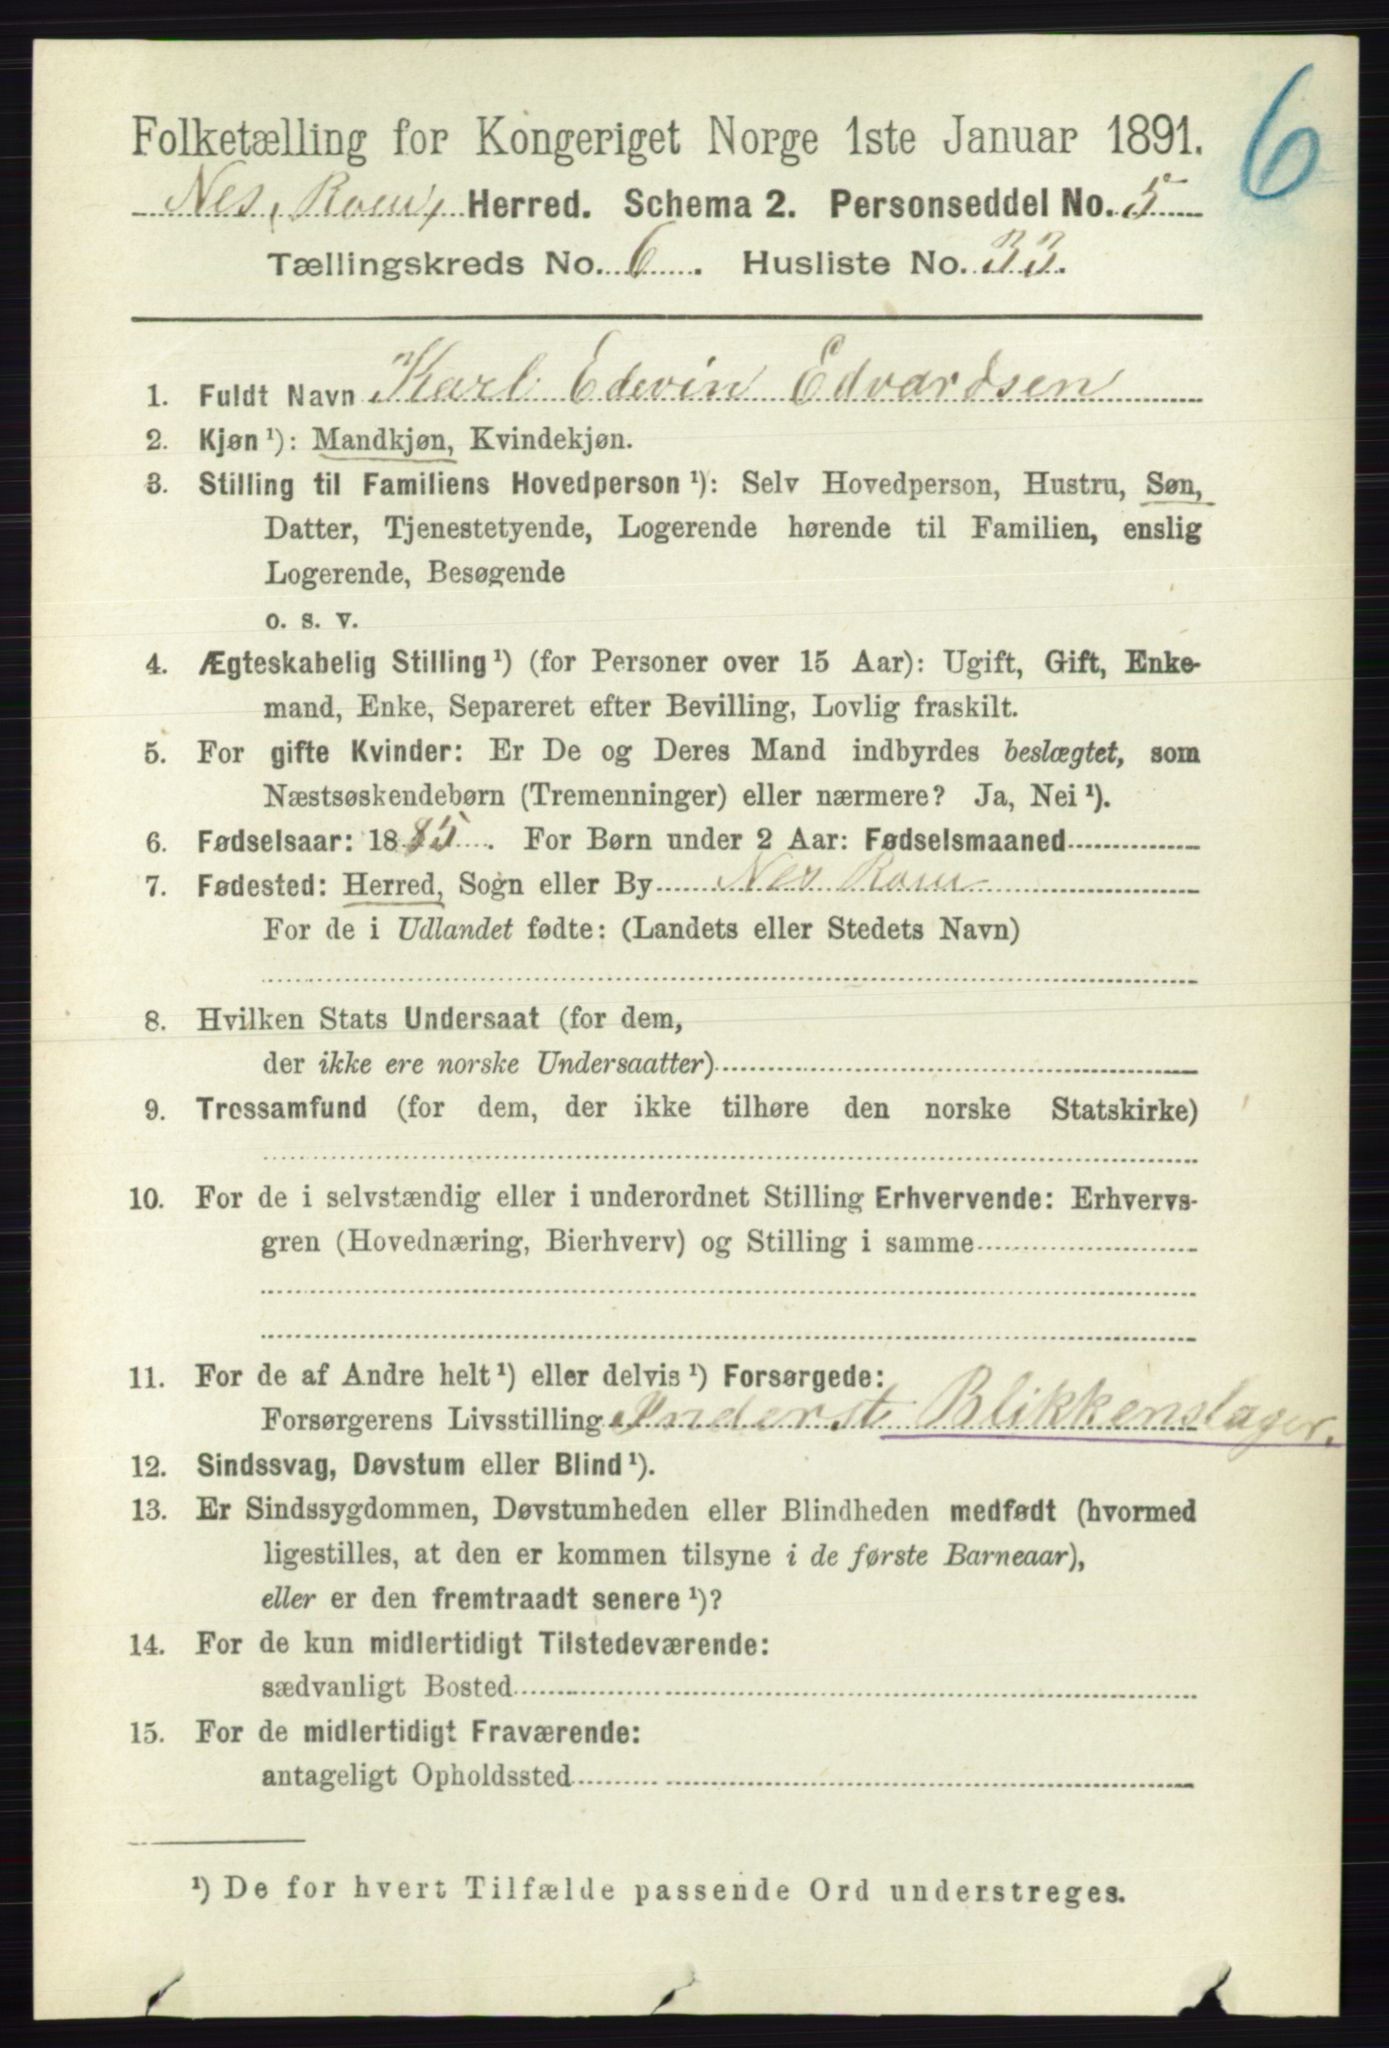 6
Folketælling for Kongeriget Norge 1ste Januar 1891.
Nes, Rom, Herred. Schema 2. Personseddel No. 5
Tællingskreds No. 6. Husliste No. 33.
1. Fuldt Navn Karl Edevin Edvardsen
2. Kjøn ¹): Mandkjøn, Kvindekjøn.
3. Stilling til Familiens Hovedperson ¹): Selv Hovedperson, Hustru, Søn,
Datter, Tjenestetyende, Logerende hørende til Familien, enslig
Logerende, Besøgende
o. s. v.
4. Ægteskabelig Stilling ¹) (for Personer over 15 Aar): Ugift, Gift, Enke-
mand, Enke, Separeret efter Bevilling, Lovlig fraskilt.
5. For gifte Kvinder: Er De og Deres Mand indbyrdes beslægtet, som
Næstsøskendebørn (Tremenninger) eller nærmere? Ja, Nei ¹).
6. Fødselsaar: 1885. For Børn under 2 Aar: Fødselsmaaned
7. Fødested: Herred, Sogn eller By Nes Rom
For de i Udlandet fødte: (Landets eller Stedets Navn)
8. Hvilken Stats Undersaat (for dem,
der ikke ere norske Undersaatter)
9. Trossamfund (for dem, der ikke tilhøre den norske Statskirke)
10. For de i selvstændig eller i underordnet Stilling Erhvervende: Erhvervs-
gren (Hovednæring, Bierhverv) og Stilling i samme
11. For de af Andre helt ¹) eller delvis ¹) Forsørgede:
Forsørgerens Livsstilling Inderst Blikkenslager.
12. Sindssvag, Døvstum eller Blind ¹).
13. Er Sindssygdommen, Døvstumheden eller Blindheden medfødt (hvormed
ligestilles, at den er kommen tilsyne i de første Barneaar),
eller er den fremtraadt senere ¹)?
14. For de kun midlertidigt Tilstedeværende:
sædvanligt Bosted
15. For de midlertidigt Fraværende:
antageligt Opholdssted
¹) De for hvert Tilfælde passende Ord understreges.